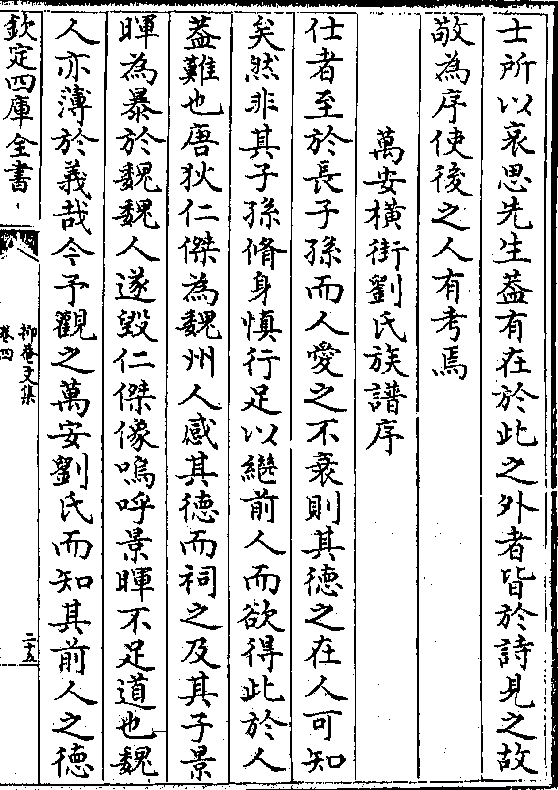 士所以哀思先生蓋有在於此之外者皆於詩見之故
敬為序使後之人有考焉
萬安横街劉氏族譜序
仕者至於長子孫而人愛之不衰則其德之在人可知
矣然非其子孫脩身慎行足以繼前人而欲得此於人
蓋難也唐狄仁傑為魏州人感其德而祠之及其子景
暉為暴於魏魏人遂毀仁傑像嗚呼景暉不足道也魏
人亦薄於義哉今予觀之萬安劉氏而知其前人之德
欽定四庫全書
抑菴文集
卷四
二十五